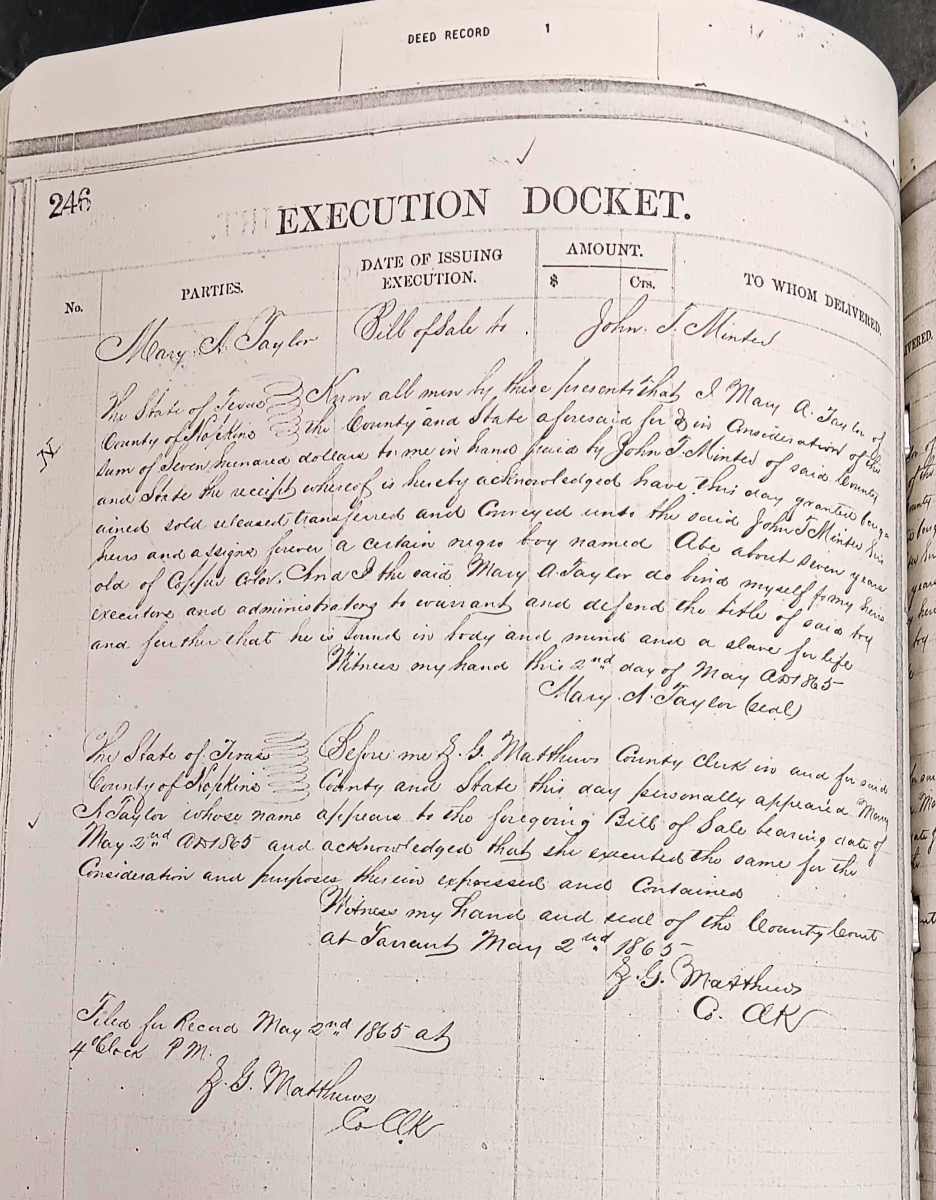 DEED RECORD 1
246
EXECUTION DOCKET.
No. PARTIES. DATE OF ISSUING EXECUTION. AMOUNT. $ Cts. TO WHOM DELIVERED.
Mary A. Taylor Bill of Sale to John. T. Minter
The State of Texas Know all men by these presents that I Mary A. Taylor of
County of Hopkins the County and State aforesaid for & in Consideration of the
Sum of Seven hundred dollars to me in hand paid by John T. Minter of said County
and State the receipt whereof is hereby acknowledged have this day granted barg-
ained sold released transferred and Conveyed unto the said John T Minter his
heirs and assigns forever a certain negro boy named Abe about seven years
old of Copper Color. And I the said Mary A. Taylor do bind myself my heirs
executors and administrators to warrant and defend the title of said boy
and further that he is sound in body and mind and a slave for life
Witness my hand this 2nd day of May AD 1865
Mary. A. Taylor (seal)
The State of Texas Before me G. Matthews County Clerk in and for said
County of Hopkins County and State this day personally appeared Mary
A Taylor whose name appears to the foregoing Bill of Sale bearing date of
May 2nd AD 1865 and acknowledged that she executed the same for the
Consideration and purposes therein expressed and Contained
Witness my hand and seal of the County Court
at Tarrant May 2nd 1865
G. Matthews
Co. Clk
Filed for Record May 2nd 1865 at
4 oClock P.M.
G. Matthews
Co Clk